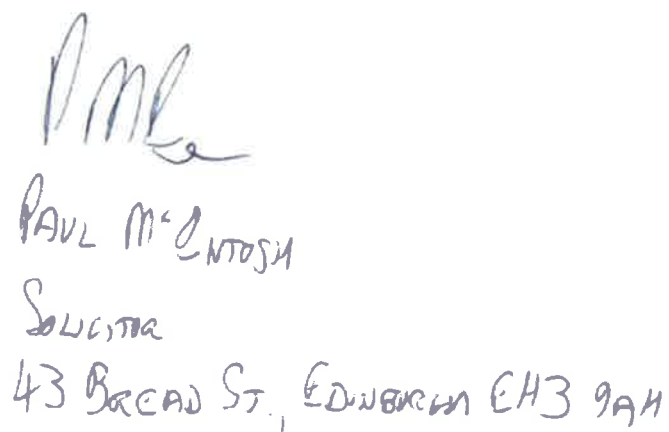 PAUL McINTOSH
SOLICITOR
43 BREAD ST., EDINBURGH EH3 9AH